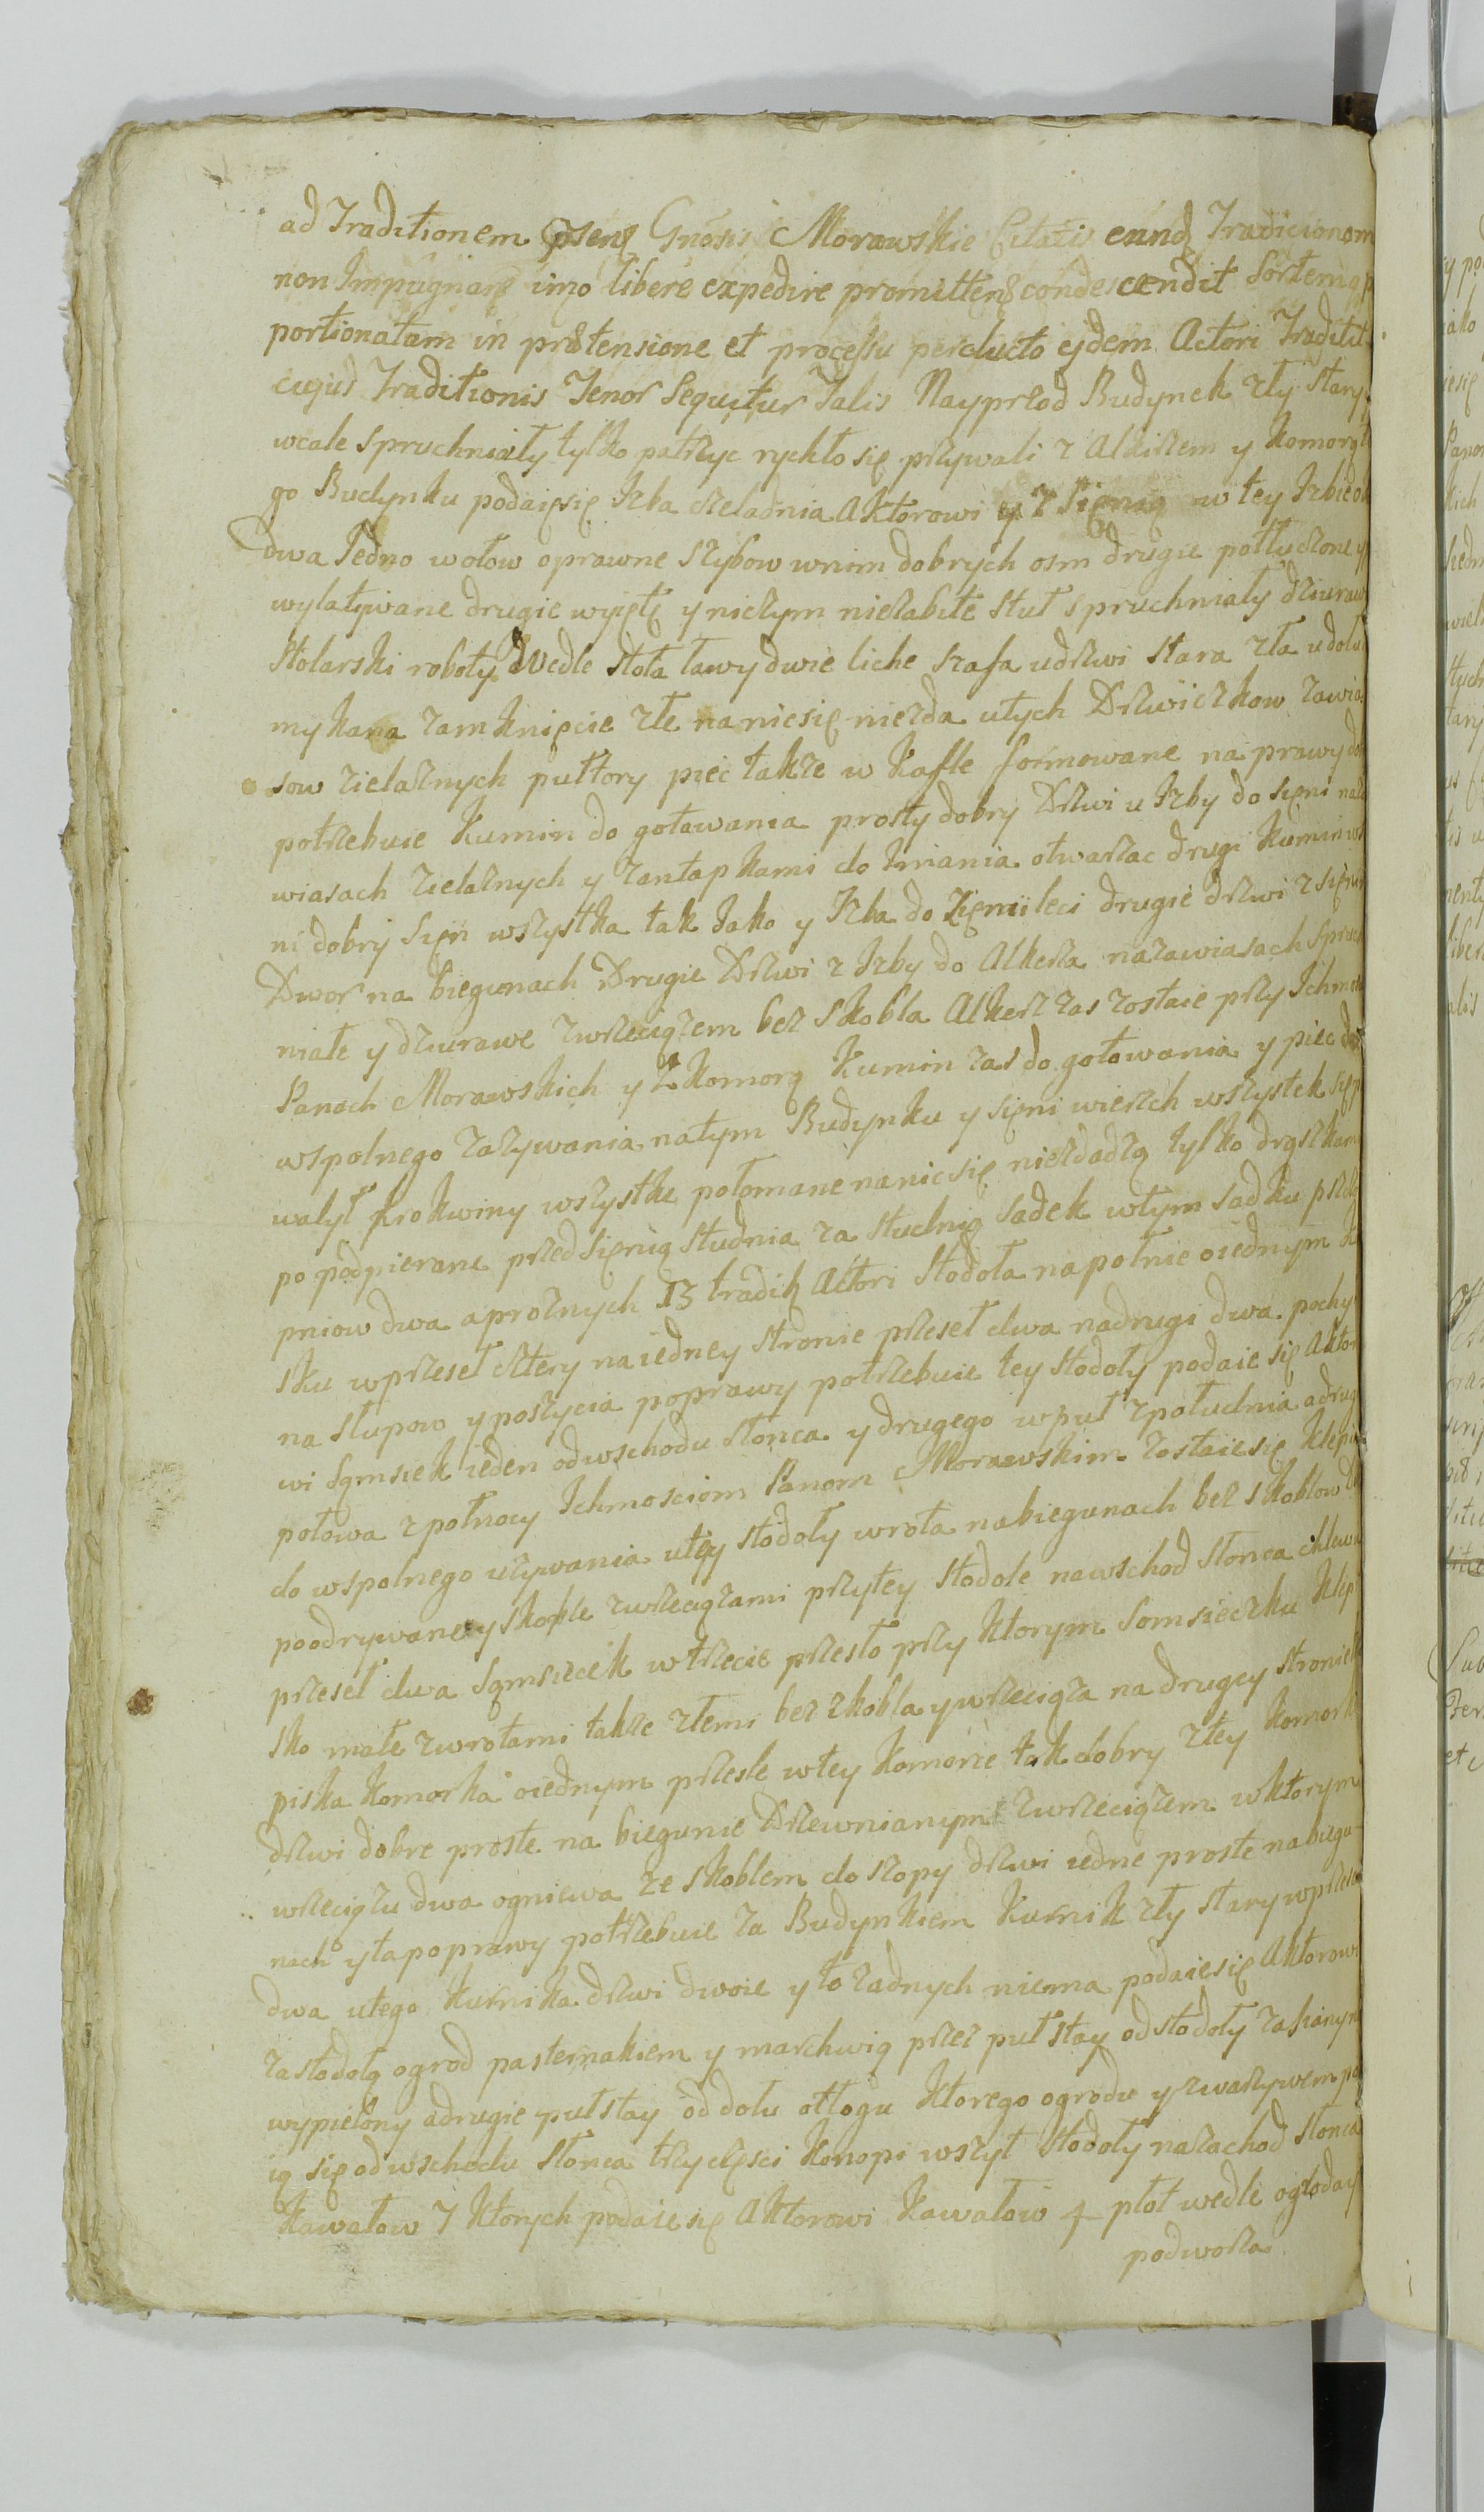 ad Traditionem psens Gnosis Morawskie Citatis eund Tradicionem
non Impugnans imo libere expedire promittens condescendit Sortem
portionatam in prætensione et processu perducto ejdem Actori Tradidit
cujus Traditionis Tenor Sequitur Talis Nayprzod Budynek zły stary
wcale spruchniały tylko patrzyc rychło się przywali z Alkirzem y komorą
go Budynku podaięsię Izba czeladnia Aktorowi y z Sięnią w tey Izbie
dwa Jedno wołow oprawne szybow wnim dobrych osm drugie potłuczone y
wylatywane drugie wyięte y niczym niezabite stuł spruchniały dziuraw
Stolarski roboty Wedle stoła ławy dwie liche szafa udrzwi stara zła udołu
mykana zamknięcie złe nanicsię niezda utych Drzwiczkow zawia
sow zielaznych pułtory piec także w Kafle formowane naprawy
potrzebuie Kumin do gotowania prosty dobry Drzwi u Izby do sięni
wiasach zielaznych y zantapkami do Imania otwarzac drugi Kumin
ni dobry Sięn wszystka tak Jako y Izba do Ziemi leci drugie drzwi z
Dwor na biegunach Drugie Drzwi z Izby do Alkerza nazawiasach
niałe y dziurawe zwrzeciązem bez Skobla Alkerz zas zostaie przy
Panach Morawskich y z komorą Kumin zas do gotowania y piec
wspolnego zazywania natym Budynku y sięni wierzch wszystek
walył krokwiny wszystkie połomane nanicsię niezdadzą tylko drązkami
popodpierane przed Sięnią studnia za studnią Sadek wtym sadku
pniow dwa aproznych 13 tradit Actori Stodoła napołnie oiednym
sku wprzeseł cztery naiedney stronie przeseł dwa nadrugi dwa
na słupow y poszycia poprawy potrzebuie tey stodoły podaie się
wi Sąmsiek ieden odwschodu słonca y drugego wpuł zpołudnia
połowa z połnocy Ichmosciom Panom Morawskim zostaie się
do wspolnego uzywania utey stodoły wrota nabiegunach bez skoblow
poodrywane y skoble zwrzeciązami przytey stodole nawschod słonca
przeseł dwa Sąmsiecik wtrzecie przesło przy ktorym Somsieczku
sko małe zwrotami także złemi bez skobla ywrzeciąza na drugey
piska Komorka oiednym przesle wtey komorze tak dobry złey
drzwi dobre proste na biegunie Drzewnianym zwrzeciązem wktorym
wrzeciązu dwa ogniewa ze skoblem do szopy drzwi iedne proste nabiegu-
nach yta poprawy potrzebuie za Budynkiem Kurnik zły stary
dwa utego Kurnika drzwi dwoie y to zadnych niema podaiesię Aktorowi
zastodołą ogrod pasternakiem y marchwią przez puł stay odstodoły
wypielony adrugie puł stay od dołu otłogu ktorego ogrodu y zwarzywem
ią się odwschodu słonca trzyczęsci konopi wszyt stodoły nazachod słonca
kawałow 7 ktorych podaie się Aktorowi Kawałow 4 płot wedle
podworza